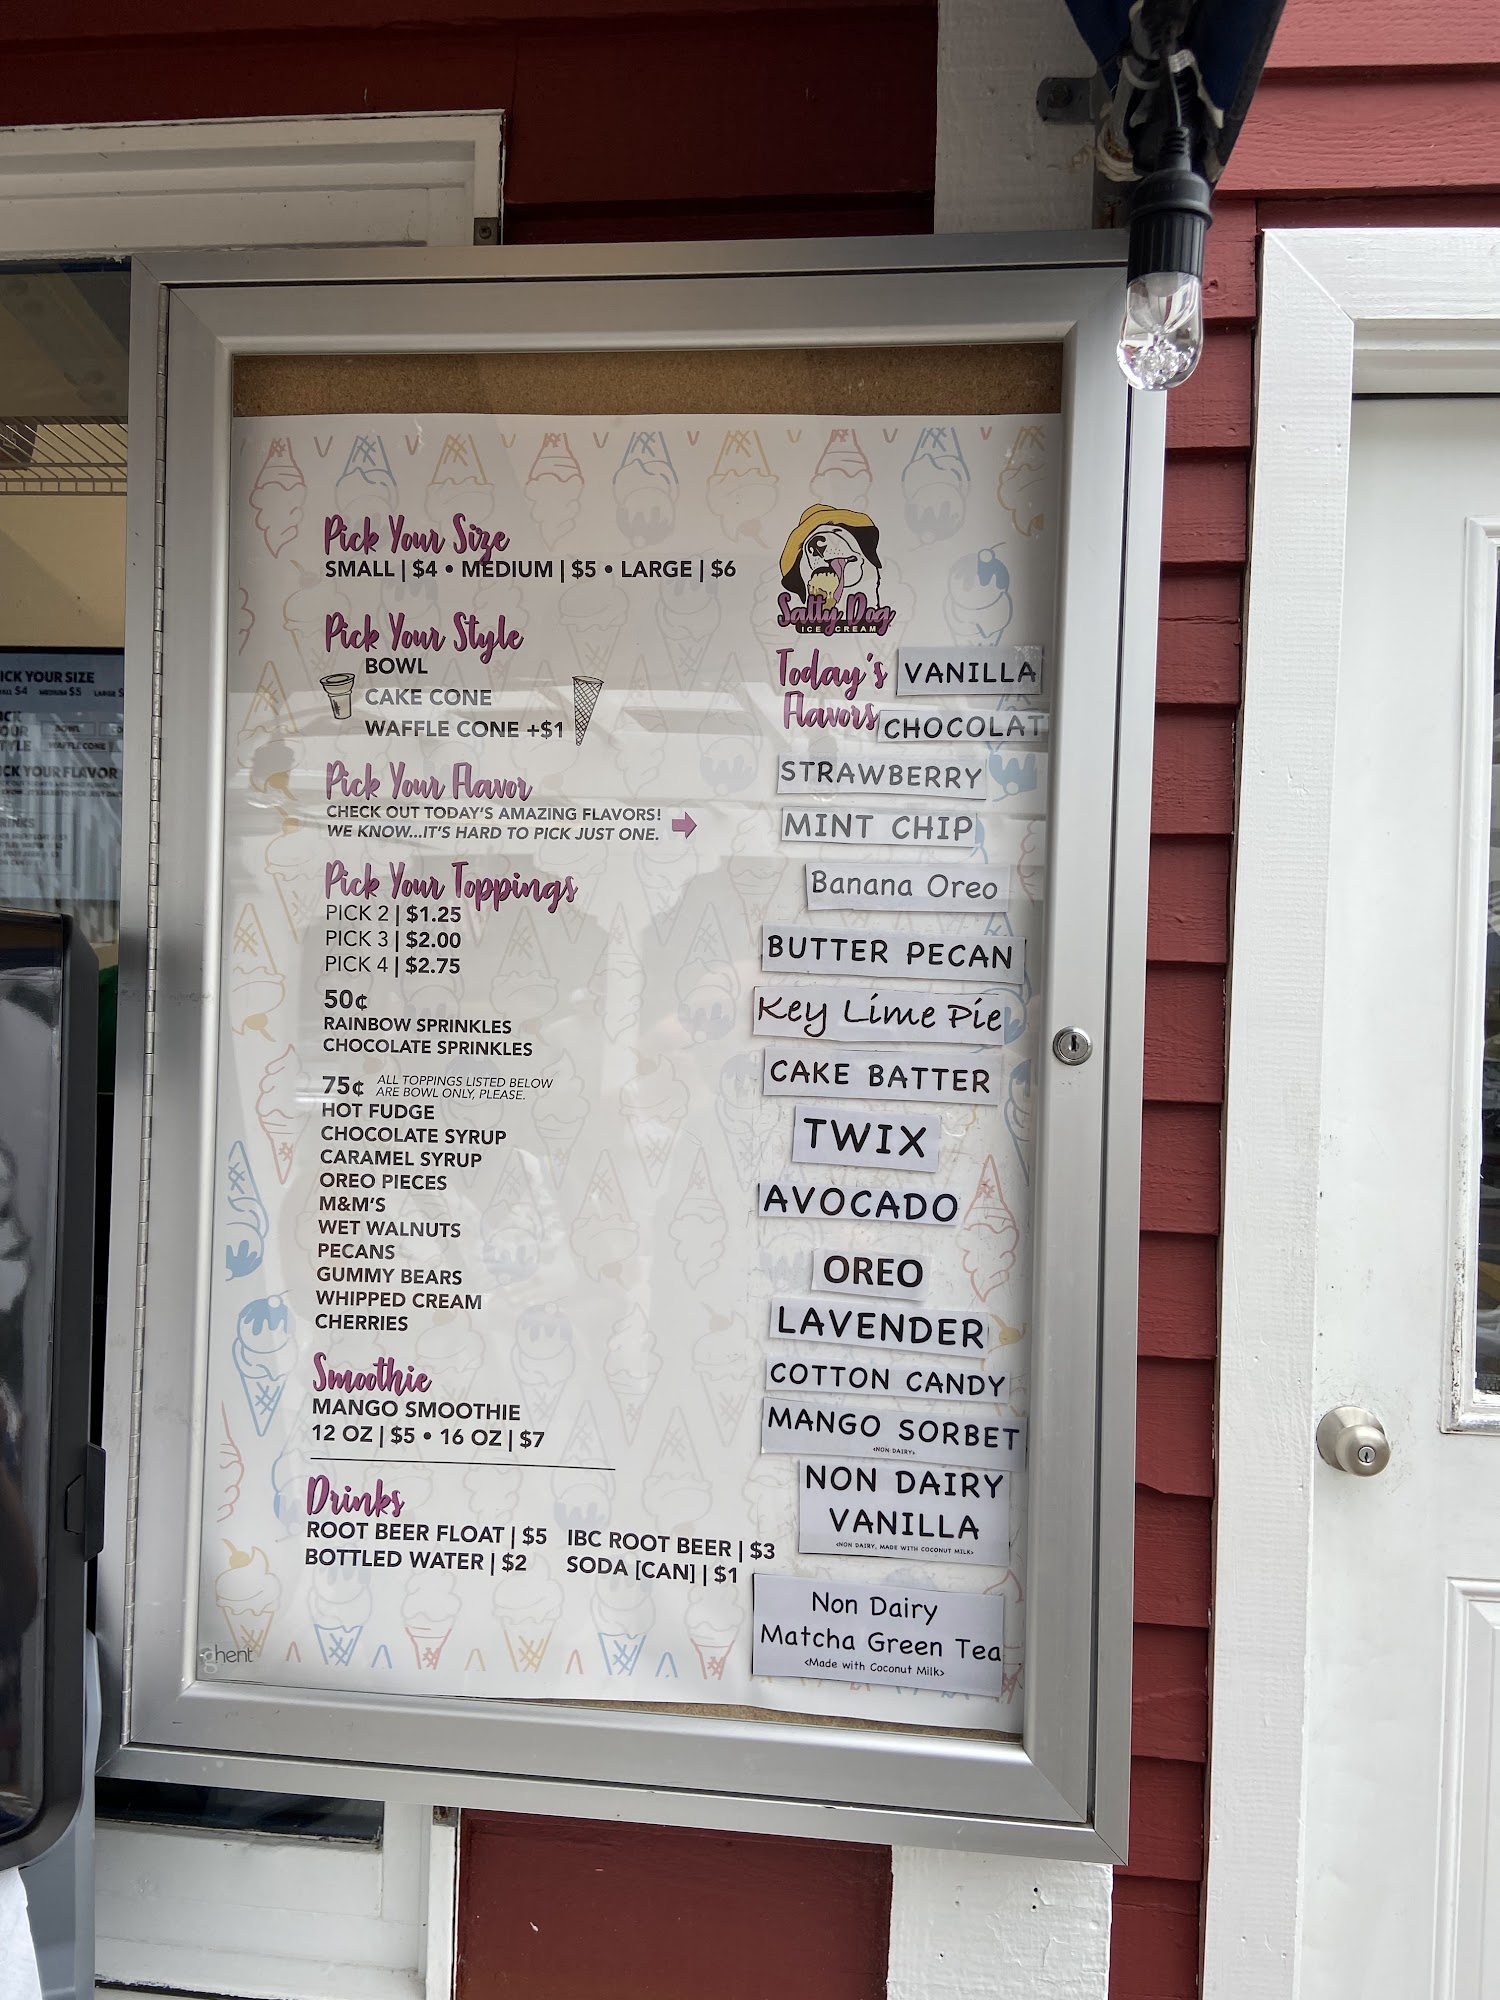 Pick Your Size
SMALL | $4 • MEDIUM | $5 • LARGE | $6
Pick Your Style
BOWL
CAKE CONE
WAFFLE CONE +$1
Pick Your Flavor
CHECK OUT TODAY'S AMAZING FLAVORS!
WE KNOW...IT'S HARD TO PICK JUST ONE.
Pick Your Toppings
PICK 2 | $1.25
PICK 3 | $2.00
PICK 4 | $2.75
50¢
RAINBOW SPRINKLES
CHOCOLATE SPRINKLES
75¢ ALL TOPPINGS LISTED BELOW
ARE BOWL ONLY, PLEASE.
HOT FUDGE
CHOCOLATE SYRUP
CARAMEL SYRUP
OREO PIECES
M&M'S
WET WALNUTS
PECANS
GUMMY BEARS
WHIPPED CREAM
CHERRIES
Smoothie
MANGO SMOOTHIE
12 OZ | $5 • 16 OZ | $7
Drinks
ROOT BEER FLOAT | $5 IBC ROOT BEER | $3
BOTTLED WATER | $2 SODA [CAN] | $1
ghent
Salty Dog
ICE CREAM
Today's
Flavors
VANILLA
CHOCOLAT
STRAWBERRY
MINT CHIP
Banana Oreo
BUTTER PECAN
Key Lime Pie
CAKE BATTER
TWIX
AVOCADO
OREO
LAVENDER
COTTON CANDY
MANGO SORBET
<NON DAIRY>
NON DAIRY
VANILLA
<NON DAIRY, MADE WITH COCONUT MILK>
Non Dairy
Matcha Green Tea
<Made with Coconut Milk>
ICK YOUR SIZE
$4 MEDIUM $5 LARGE
ICK
OUR
TYLE
BOWL
WAFFLE CONE
ICK YOUR FLAVOR
RINKS